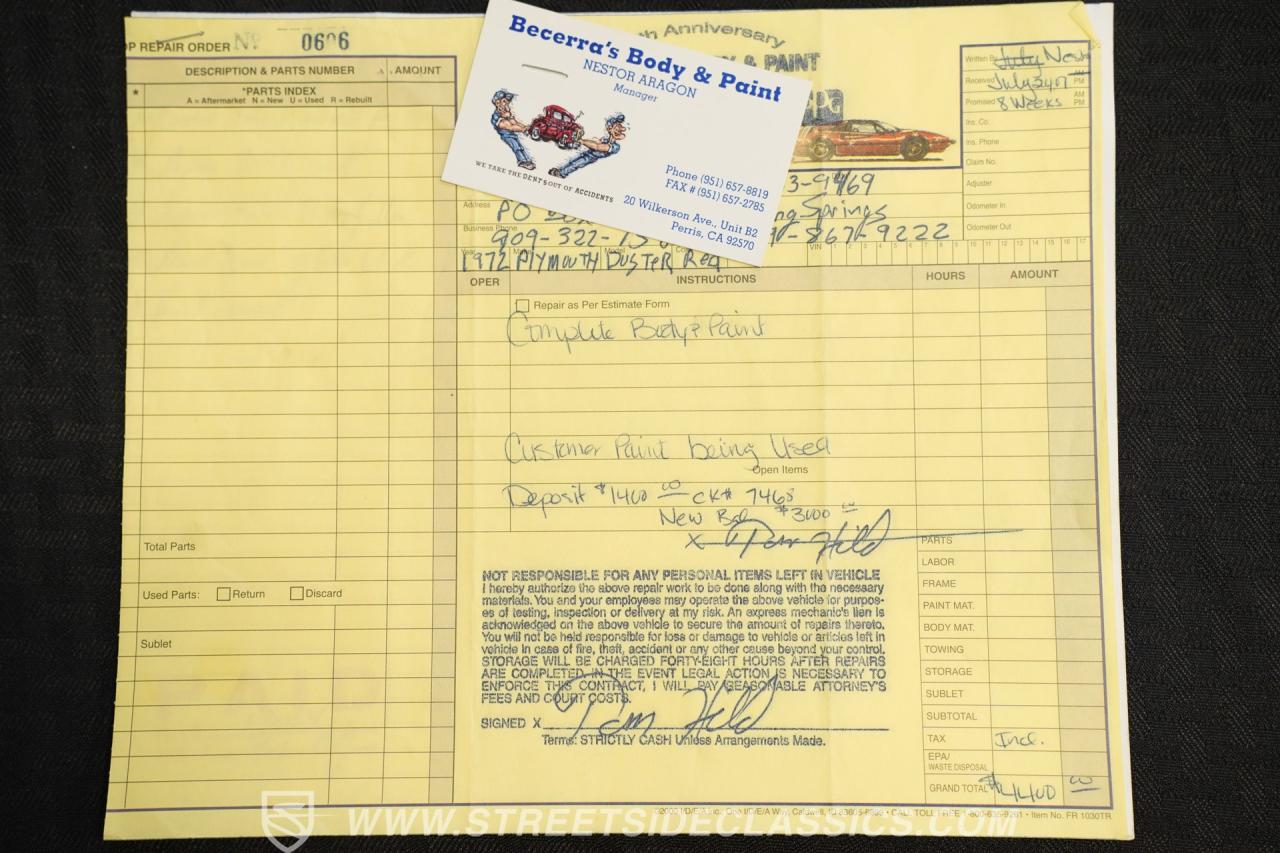 OP REPAIR ORDER Nº 0606
DESCRIPTION & PARTS NUMBER AMOUNT
*
*PARTS INDEX
A = Aftermarket N = New U = Used R = Rebuilt
Total Parts
Used Parts: Return Discard
Sublet
Becerra's Body & Paint
NESTOR ARAGON
Manager
WE TAKE THE DENTS OUT OF ACCIDENTS
Phone (951) 657-8819
FAX # (951) 657-2785
20 Wilkerson Ave., Unit B2
Perris, CA 92570
Anniversary
& PAINT
Written By
Received PM
Promised 8 Weeks AM PM
Ins. Co.
Ins. Phone
Claim No.
Adjuster
Odometer In
Odometer Out
3-9469
Address PO Springs
Business Phone 909-322- 867-9222
VIN 7 8 9 10 11 12 13 14 15 16 17
Year
1972 Plymouth Duster Red
OPER INSTRUCTIONS HOURS AMOUNT
Repair as Per Estimate Form
Complete Body & Paint
Customer Paint being Used
Open Items
Deposit $1400 00 CK# 7468
New Bal $3000 00
X Tom Hild
NOT RESPONSIBLE FOR ANY PERSONAL ITEMS LEFT IN VEHICLE
I hereby authorize the above repair work to be done along with the necessary
materials. You and your employees may operate the above vehicle for purpos-
es of testing, inspection or delivery at my risk. An express mechanic's lien is
acknowledged on the above vehicle to secure the amount of repairs thereto.
You will not be held responsible for loss or damage to vehicle or articles left in
vehicle in case of fire, theft, accident or any other cause beyond your control.
STORAGE WILL BE CHARGED FORTY-EIGHT HOURS AFTER REPAIRS
ARE COMPLETED. IN THE EVENT LEGAL ACTION IS NECESSARY TO
ENFORCE THIS CONTRACT, I WILL PAY REASONABLE ATTORNEY'S
FEES AND COURT COSTS.
SIGNED X Tom Hild
Terms: STRICTLY CASH Unless Arrangements Made.
PARTS
LABOR
FRAME
PAINT MAT.
BODY MAT.
TOWING
STORAGE
SUBLET
SUBTOTAL
TAX Incl.
EPA/
WASTE DISPOSAL
GRAND TOTAL $4400 00
©2000 I/D/E/A Inc., One I/D/E/A Way, Caldwell, • CALL TOLL FREE 1-800-635-9261 • Item No. FR 1030TR
WWW.STREETSIDECLASSICS.COM